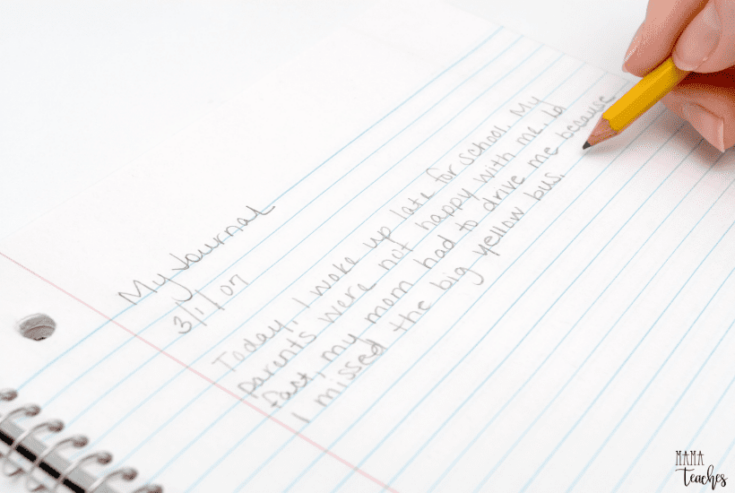 My Journal
3/1/07
Today, I woke up late for school. My
parents were not happy with me. In
fact, my mom had to drive me because
I missed the big yellow bus.
MAMA
Teaches